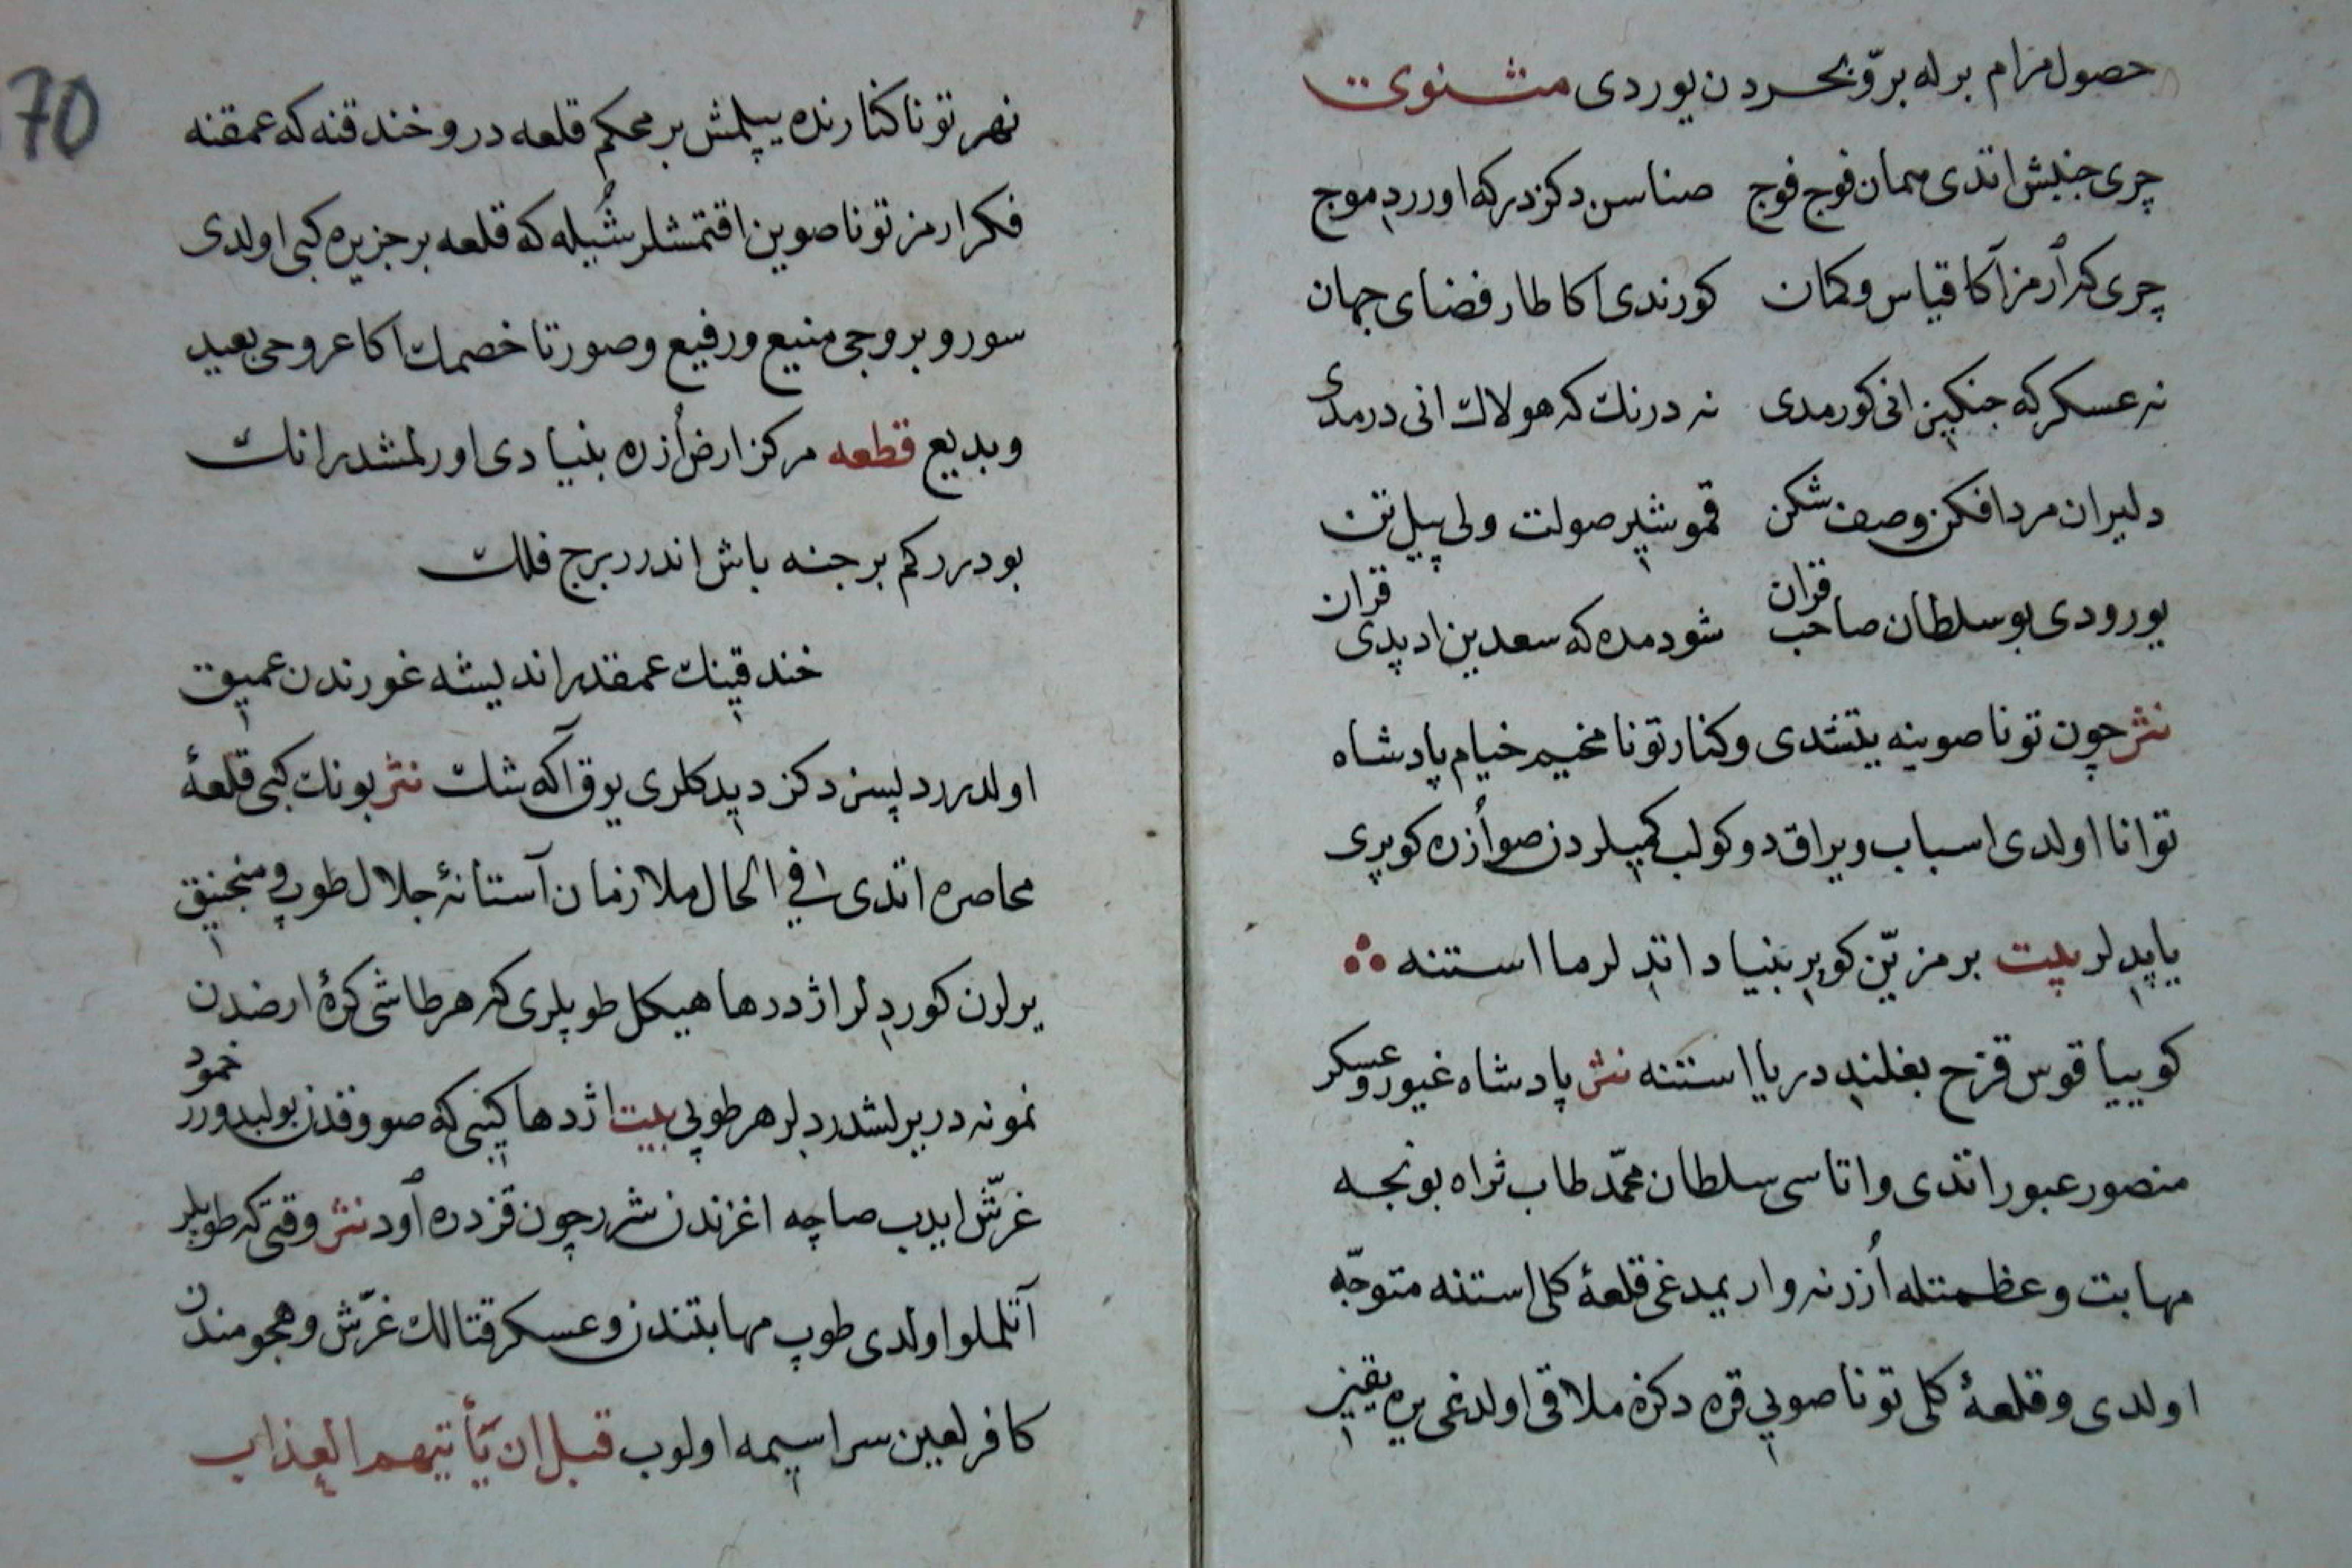 حصول مرام برله برّ و بحردن یوردی مثنوی
چری جنبش اتدی همان فوج فوج صناسن دکزدر که اورر موج
چری کم ارمز آکا قیاس و کمان کورندی آکا طار فضای جهان
نه عسکر که جنکیز انی کورمدی نه درنك که هولاك انی درمدی
دلیران مرد افکن و صف شکن قمو شیر صولت ولی پیل تن
یورودی بو سلطان صاحب قران شو دمده که سعدین ادیدی قران
نثر چون تونا صوینه یتشدی و کنار تونا مخیم خیام پادشاه
توانا اولدی اسباب و یراق دوکولب کمیلردن صو اُزره کوپری
یاپدیلر بیت بر مزیّن کوپر بنیاد اتدلر ما استنه
کوییا قوس قزح بغلندی دریا استنه نثر پادشاه غیور و عسکر
منصور عبور اتدی و اتاسی سلطان محمّد طاب ثراه بونجه
مهابت و عظمتله اُزرنه واریمدغی قلعهٔ کلی استنه متوجّه
اولدی و قلعهٔ کلی تونا صویی قره دکزه ملاقی اولدغی یره یقین
70
نهر تونا کنارنده یپلمش بر محکم قلعه در و خندقنه که عمقنه
فکر ارمز تونا صوین اقتمشلر شُیله که قلعه بر جزیره کبی اولدی
سور و بروجی منیع و رفیع و صورتا خصمك آکا عروجی بعید
و بدیع قطعه مرکز ارض اُزره بنیادی اورلمشدر انك
بودرر کم برجنه باش اندرر برج فلك
خندقینك عمقدر اندیشه غورندن عمیق
اولدرر دلسن دکز دیدکلری یوق آکه شك نثر بونك کبی قلعهٔ
محاصره اتدی فی الحال ملازمان آستانهٔ جلال طوپ و منجنیق
یرلرن کوردلر اژدرها هیکل طوپلری که هر طاشی کرهٔ ارضدن
نمونه در یرلشدردلر هر طوپی بیت اژدها کبی که صووقدن بولیدورر خمود
غرّش ایدب صاچه اغزندن شرر چون قزدره اود نثر وقتی که طوپلر
آتلملو اولدی طوپ مهابتندن و عسکر قتالك غرّش و هجومندن
کافر لعین سراسیمه اولوب قبل ان یأتیهم العذاب